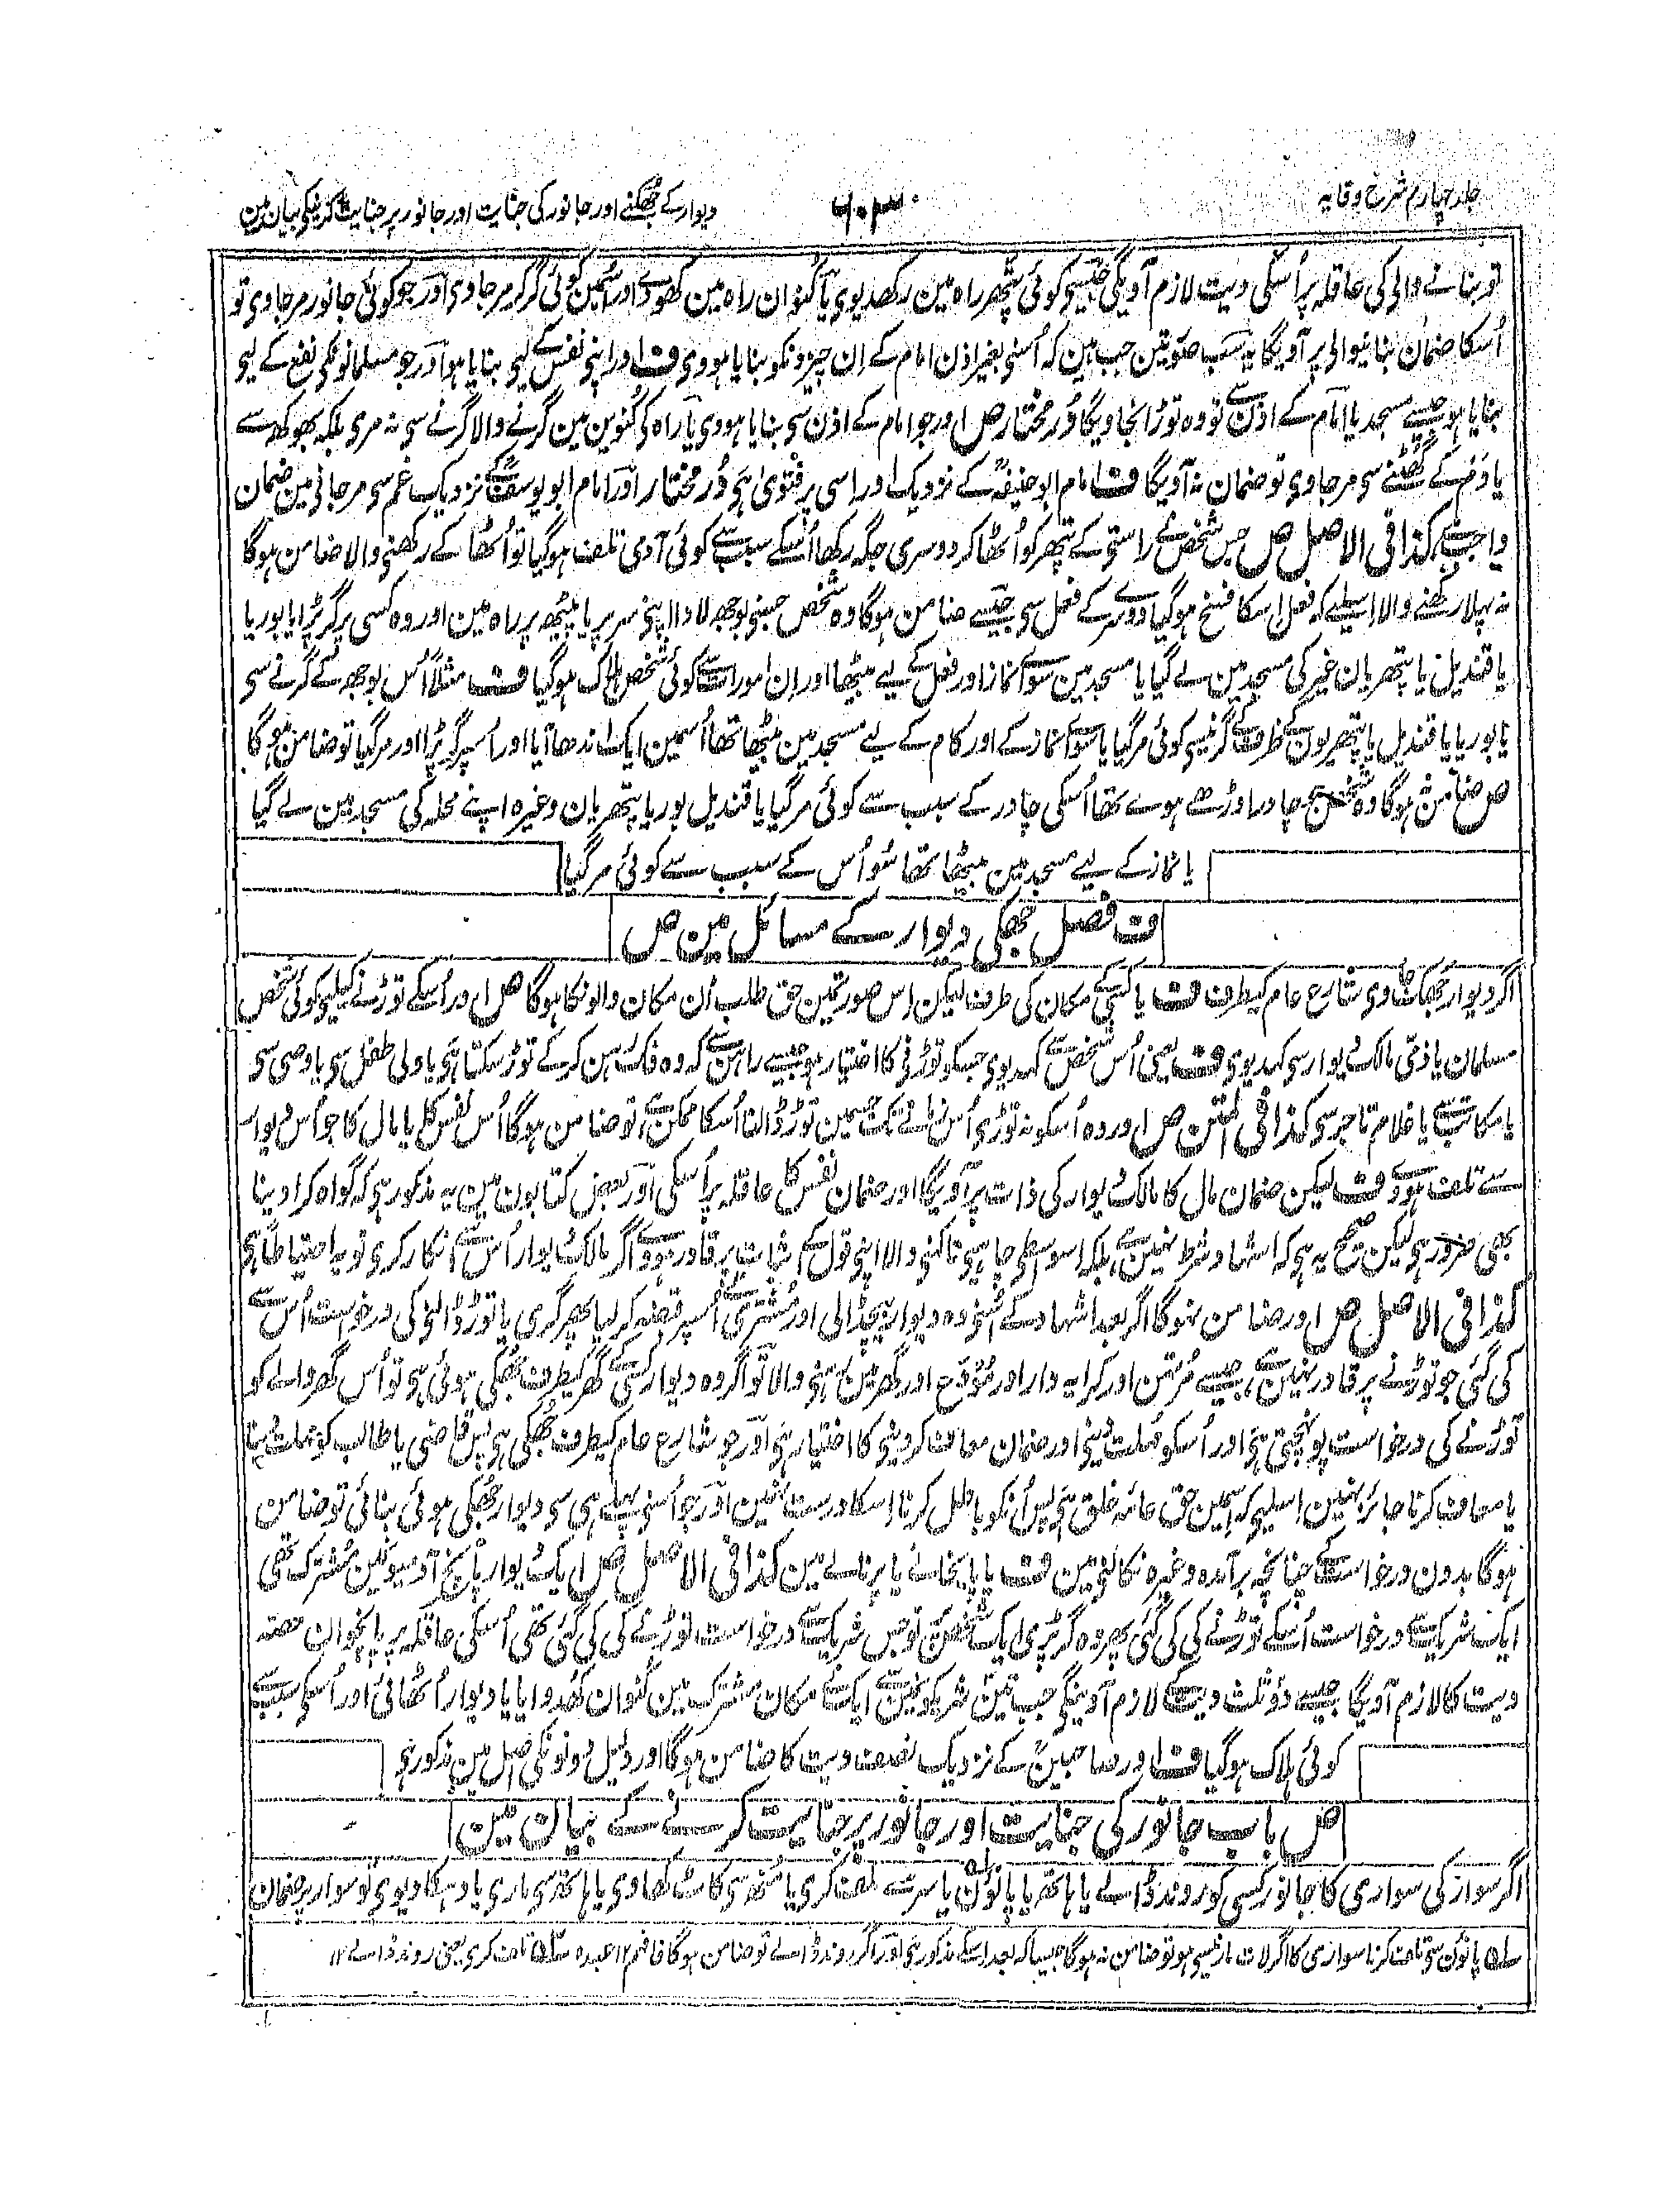 جلد چہارم شرح وقایہ
۶۰۳
دیوار کے جھکنے اور جانور کی جنایت اور جانور پر جنایت کرنیکی بیان مین
تو بنانے والی کی عاقلہ پر اُسکی دیت لازم آویگی جیسی کوئی پتھر راہ مین رکھدیوی یا کنوان راہ مین کھودے اور اسمین کوئی گر کر مر جاوی اور جو کوئی جانور مر جاوی تو
اُسکا ضمان بنانیوالی پر آویگا یہ سب صورتین جب ہین کہ اُسنی بغیر اذن امام کے ان چیزونکو بنایا ہووی ف اور اپنی نفس کے لیی بنایا ہو اور جو مسلمانونکی نفع کے لیی
بنایا ہو جیسے مسجد یا امام کے اذن سے تو وہ توڑا نجاویگا دُر مختار ص اور جو امام کے اذن سی بنایا ہووی یا راہ کی کنوین مین گرنے والا گرنے سی نہ مری بلکہ بھوکھ سے
یا دَم کے گھٹنے سی مر جاوی تو ضمان نہ آویگا ف امام ابو حنیفہؒ کے نزدیک اور اسی پر فتویٰ ہی دُر مختار اور امام ابو یوسفؒ کے نزدیک غم سی مر جانی مین ضمان
واجب ہے کذا فی الاصل ص جس شخص نے راستی کے پتھر کو اُٹھا کر دوسری جگہ رکھا اُسکے سبب سے کوئی آدمی تلف ہو گیا تو اُٹھا کے رکھنی والا ضامن ہوگا
نہ پہلا رکھنے والا اسلیے کہ فعل اسکا فسخ ہو گیا دوسرے کے فعل سی جیسے ضامن ہوگا وہ شخص جسنی بوجھ لادا اپنی سر پر یا پیٹھ پر راہ مین اور وہ کسی پر گر پڑا یا بوریا
یا قندیل یا پتھریان غیر کی مسجد مین لے گیا یا مسجد مین سوائے نماز اور فعل کے لیے بیٹھا اور ان امور سے کوئی شخص ہلاک ہو گیا ف مثلاً اُس بوجھ کے گرنے سی
یا بوریا یا قندیل یا پتھریون کے ظرف کے گرنیسی کوئی مر گیا یا سوائے نماز کے اور کام کے لیے مسجد مین بیٹھا تھا اُسمین ایک اندھا آیا اور اُسپر گر پڑا اور مر گیا تو ضامن ہوگا
ص ضامن نہوگا وہ شخص جو چادر اوڑھے ہوے تھا اُسکی چادر کے سبب سے کوئی مر گیا یا قندیل بوریا پتھریان وغیرہ اپنے محلہ کی مسجد مین لے گیا
یا نماز کے لیے مسجد مین بیٹھا تھا سو اُس کے سبب سے کوئی مر گیا
ف فصل جھکی دیوار کے مسائل مین ص
اگر دیوار جھک جاوی شارع عام کیطرف ف یا کسی کے مکان کی طرف لیکن اس صورتمین حق طلب اُن مکان والونکا ہوگا ص اور اُسکے توڑنے کیلیی کوئی شخص
مسلمان یا ذمی مالک دیوار سی کہدیوی ف یعنی اُس شخص سے کہدیوی جسکو توڑنی کا اختیار ہو جیسے راہن سے کہ وہ فک رہن کر کے توڑ سکتا ہی یا ولی طفل سی یا وصی سی
یا مکاتب سے یا غلام تاجر سی کذا فی المتن ص اور وہ اُسکو نہ توڑی اُس زمانے تک جسمین توڑ ڈالنا اُسکا ممکن ہے تو ضامن ہوگا اُس نفس کا یا مال کا جو اُس دیوار
سے تلف ہووے ف لیکن ضمان مال کا مالک دیوار کی ذات پر آویگا اور ضمان نفس کا عاقلہ پر اُسکی اور بعض کتابون مین یہ مذکور ہی کہ گواہ کرا دینا
بھی ضرور ہی لیکن صحیح یہ ہی کہ اشہاد شرط نہین ہے بلکہ اسواسطی چاہیی تا کہنی والا اپنی قول کے اثبات پر قادر ہووے اگر مالک دیوار اُس سے انکار کری تو یہ احتیاطاً ہی
کذا فی الاصل ص اور ضامن نہوگا اگر بعد اشہاد کے اُسنی وہ دیوار بیچ ڈالی اور مشتری نے اُسپر قبضہ کر لیا پھر گری یا توڑ ڈالنی کی درخواست اُس سے
کی گئی جو توڑنے پر قادر نہین ہے جیسے مُرتہن اور کرایہ دار اور مُودَع اور گھر مین رہنی والا تو اگر وہ دیوار کسی کے گھر کیطرف جھکی ہوئی ہی تو اُس گھر والے کو
توڑنے کی درخواست پہونچتی ہی اور اُسکو مہلت دینی اور ضمان معاف کر دینی کا اختیار ہی اور جو شارع عام کیطرف جھکی ہی پس قاضی یا طالب کو مہلت دینا
یا معاف کرنا جائز نہین اسلیی کہ اسمین حق عامہ خلق ہی پس اُنکو باطل کرنا اسکا درست نہین اور جو اُسنی پہلے ہی سی دیوار جھکی ہوئی بنائی تو ضامن
ہوگا بدون درخواست کے چنانچہ برآمدہ وغیرہ نکالنی مین ف یا پایخانے یا پرنالے مین کذا فی الاصل ص ایک دیوار پانچ آدمیونمین مُشترک تھی
ایک شریک سے درخواست اُسکے توڑنے کی کی گئی پھر وہ گر پڑی ایک شخص پر تو جس شریک سے درخواست توڑنے کی کی گئی تھی اُسکی عاقلہ پر پانچوان حصہ
دیت کا لازم آویگا جیسے دو ثلث دیت کے لازم آوینگی جب تین شریکونمین سے ایک نے مکان مشترک مین کنوان کھدوایا یا دیوار اُٹھائی اور اُسکی سبب سے
کوئی ہلاک ہو گیا ف اور صاحبینؒ کے نزدیک نصف دیت کا ضامن ہوگا اور دلیل دونونکی اصل مین مذکور ہی
ص باب جانور کی جنایت اور جانور پر جنایت کرنے کے بیان مین
اگر سوار کی سواری کا جانور کسی کو روند ڈالے یا ہاتھ یا پانوُن یا سر سے تلف کری یا مُنھ سی کاٹ کھاوی یا ہاتھ سی ماری یا دھکا دیوی تو سوار پر ضمان
لہ پانوُن سی تلف کرنا سواری کا اگر لات مارنیسی ہو تو ضامن نہ ہوگا جیسا کہ بعد اسکے مذکور ہی اور اگر روند ڈالے تو ضامن ہوگا فافہم ۱۲ عبدہ ۲ہ تلف کری یعنی روند ڈالے ۱۲